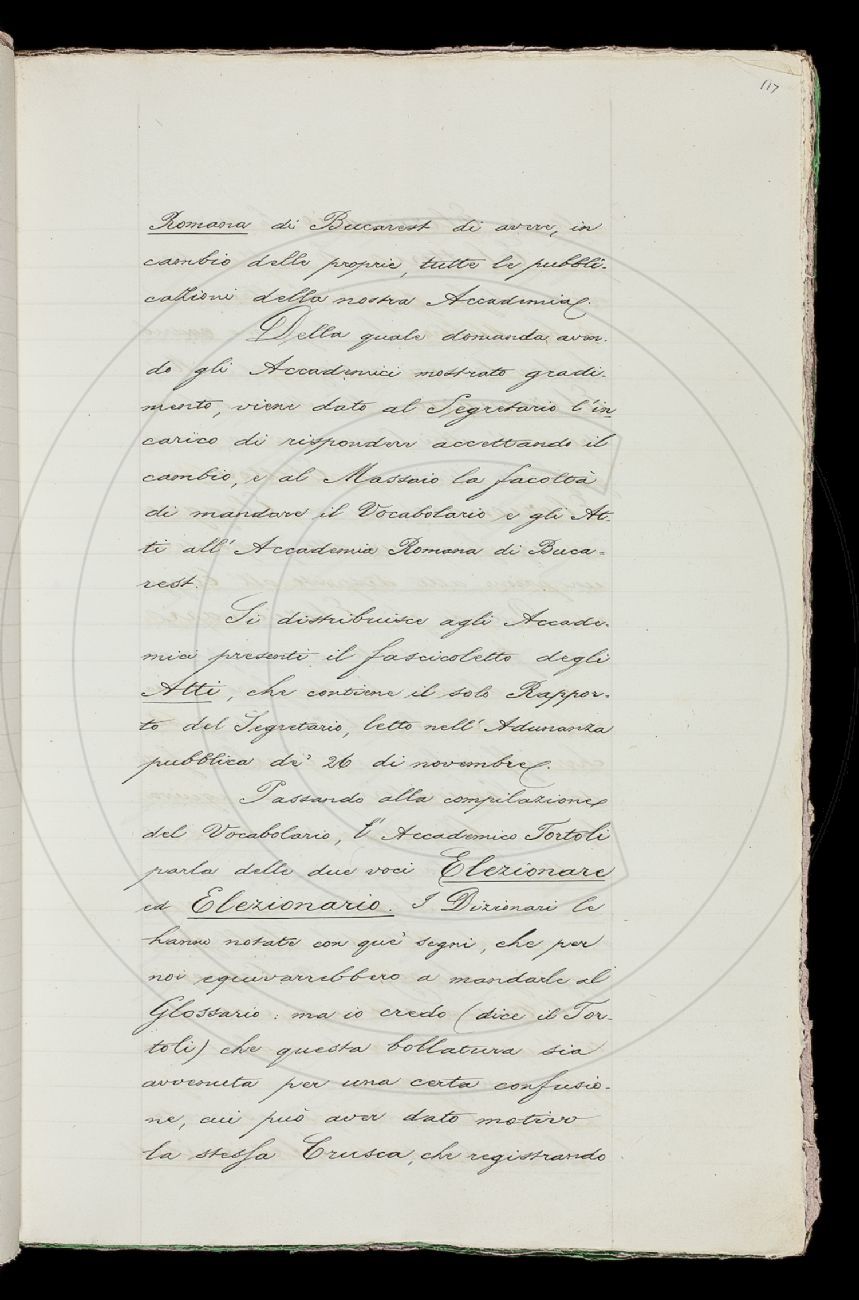 117
Romana di Bucarest di avere, in
cambio delle proprie, tutte le pubbli-
cazioni della nostra Accademia.
Della quale domanda aven-
do gli Accademici mostrato gradi-
mento, viene dato al Segretario l'in
carico di rispondere accettando il
cambio, e al Massaio la facoltà
di mandare il Vocabolario e gli At-
ti all'Accademia Romana di Buca-
rest.
Si distribuisce agli Accade-
mici presenti il fascicoletto degli
Atti, che contiene il solo Rappor-
to del Segretario, letto nell'Adunanza
pubblica de' 26 di novembre.
Passando alla compilazione
del Vocabolario, l'Accademico Tortoli
parla delle due voci Elezionare
ed Elezionario. I Dizionari le
hanno notate con que' segni, che per
noi equivarrebbero a mandarle al
Glossario: ma io credo (dice il Tor-
toli) che questa bollatura sia
avvenuta per una certa confusio-
ne, cui può aver dato motivo
la stessa Crusca, che registrando